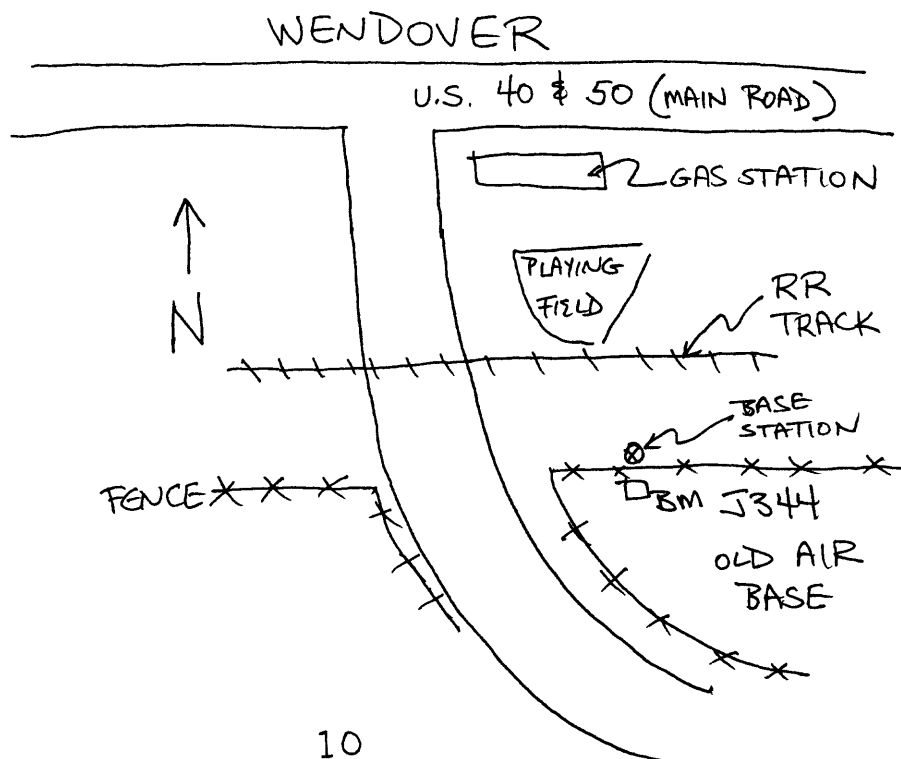 WENDOVER
U.S. 40 & 50 (MAIN ROAD)
GAS STATION
N
PLAYING
FIELD
RR
TRACK
BASE
STATION
FENCE
BM J344
OLD AIR
BASE
10